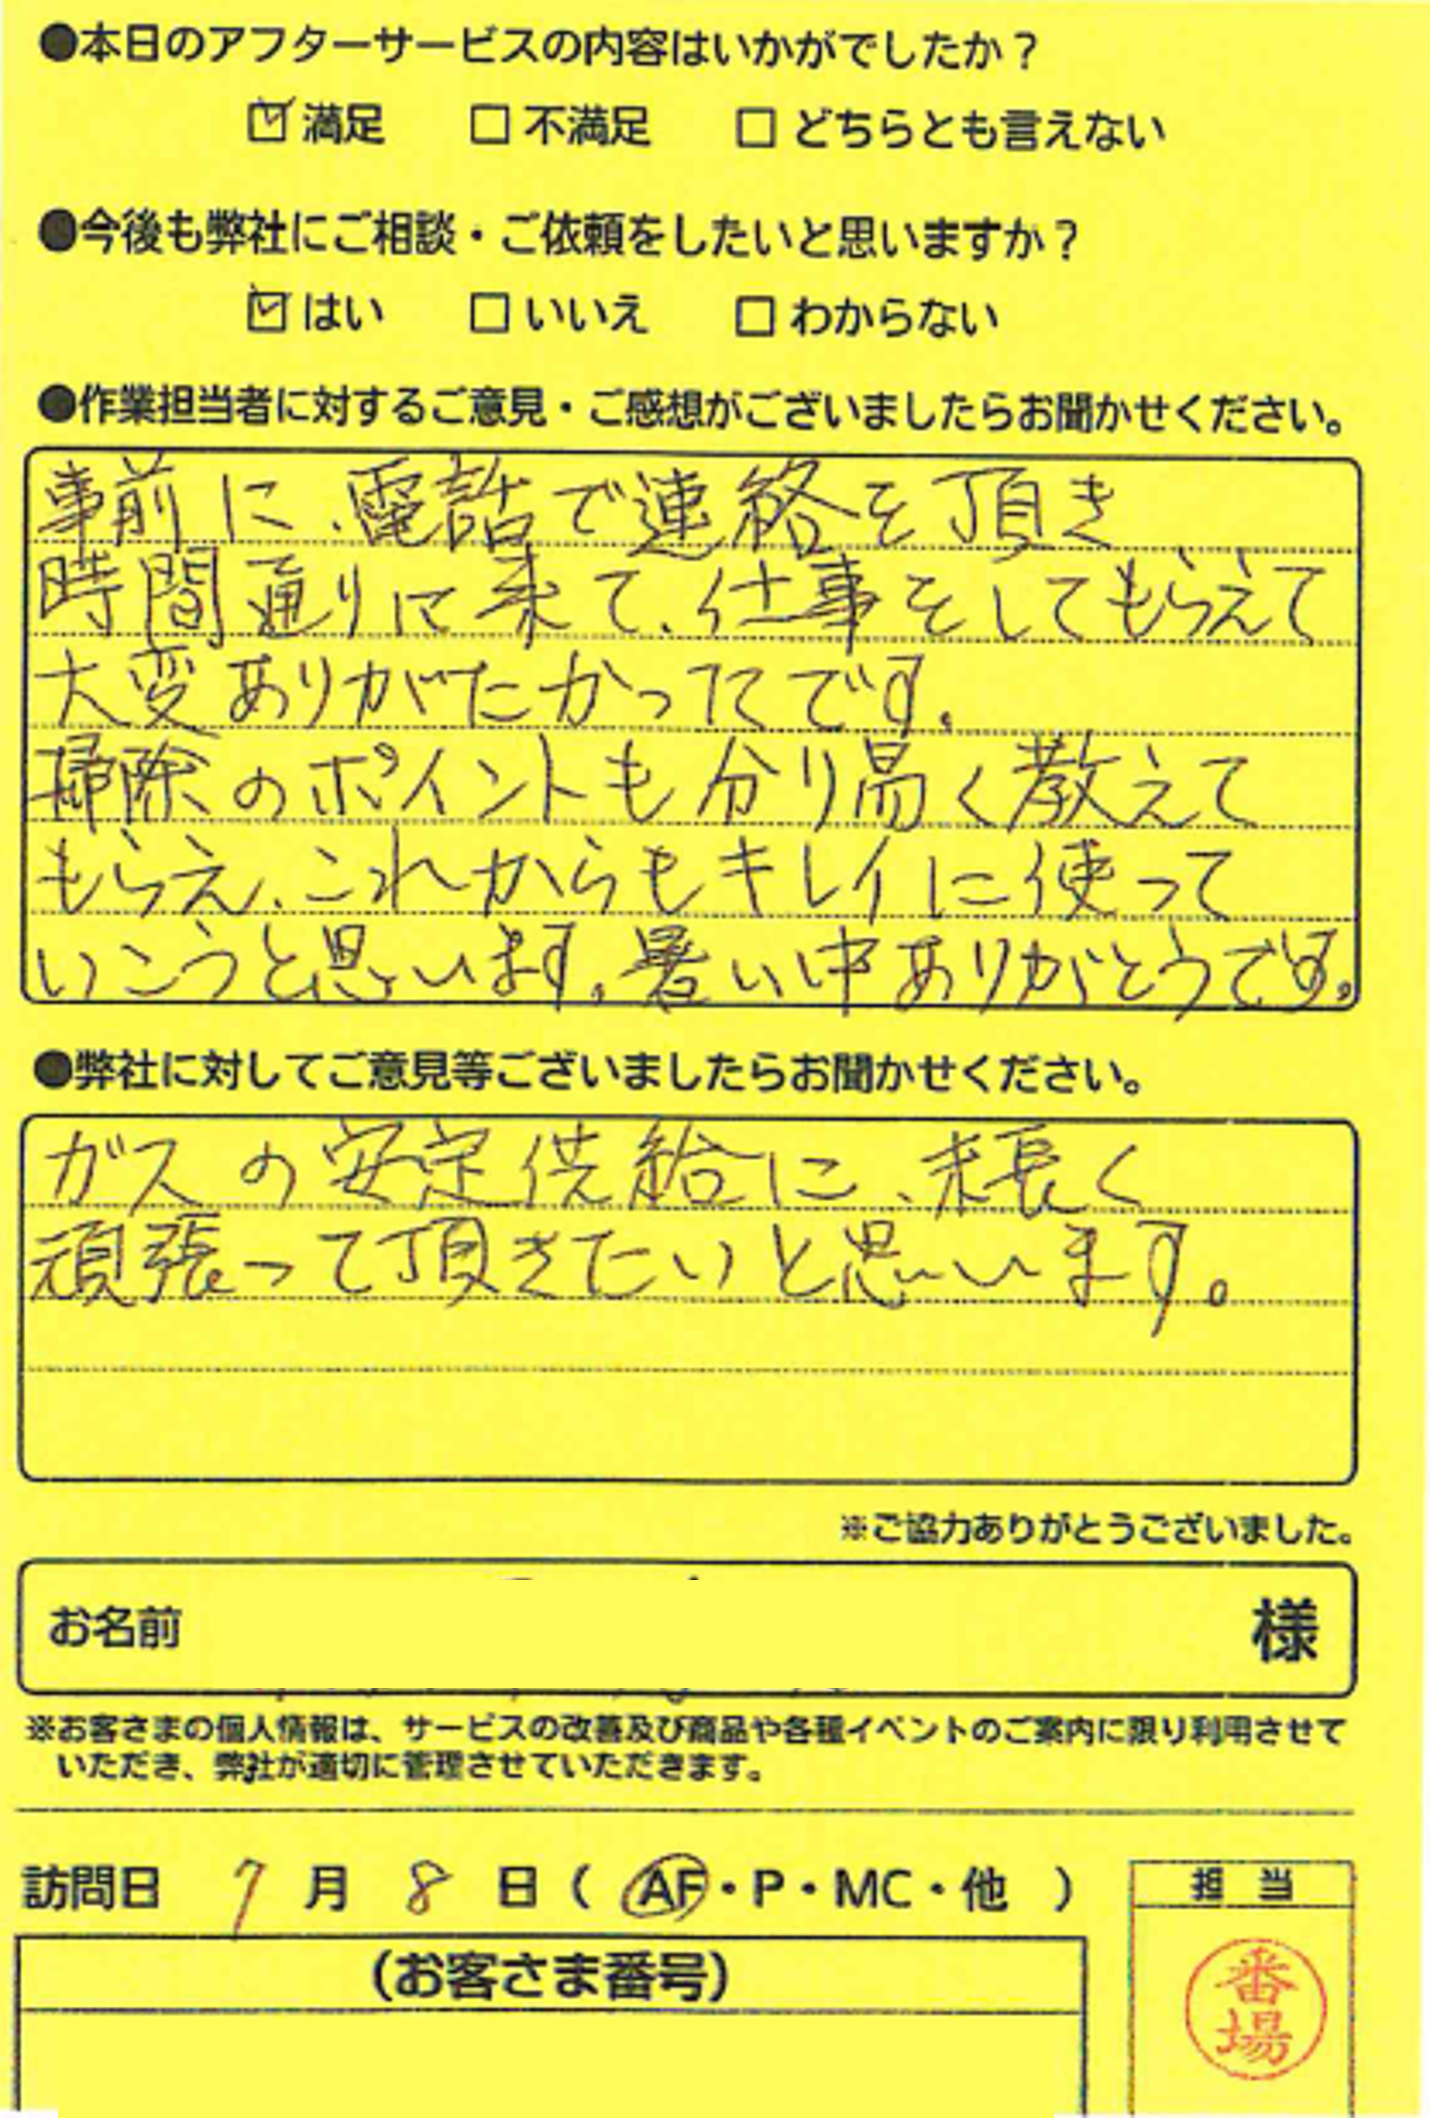 ●本日のアフターサービスの内容はいかがでしたか？
☑満足 □不満足 □どちらとも言えない
●今後も弊社にご相談・ご依頼をしたいと思いますか？
☑はい □いいえ □わからない
●作業担当者に対するご意見・ご感想がございましたらお聞かせください。
事前に、電話で連絡を頂き
時間通りに来て、仕事をしてもらえて
大変ありがたかったです。
掃除のポイントも分り易く教えて
もらえ、これからもキレイに使って
いこうと思います。暑い中ありがとうです。
●弊社に対してご意見等ございましたらお聞かせください。
ガスの安定供給に、末長く
頑張って頂きたいと思います。
※ご協力ありがとうございました。
お名前 様
※お客さまの個人情報は、サービスの改善及び商品や各種イベントのご案内に限り利用させて
いただき、弊社が適切に管理させていただきます。
訪問日 7月8日（AF・P・MC・他）
担当
(お客さま番号)
番場